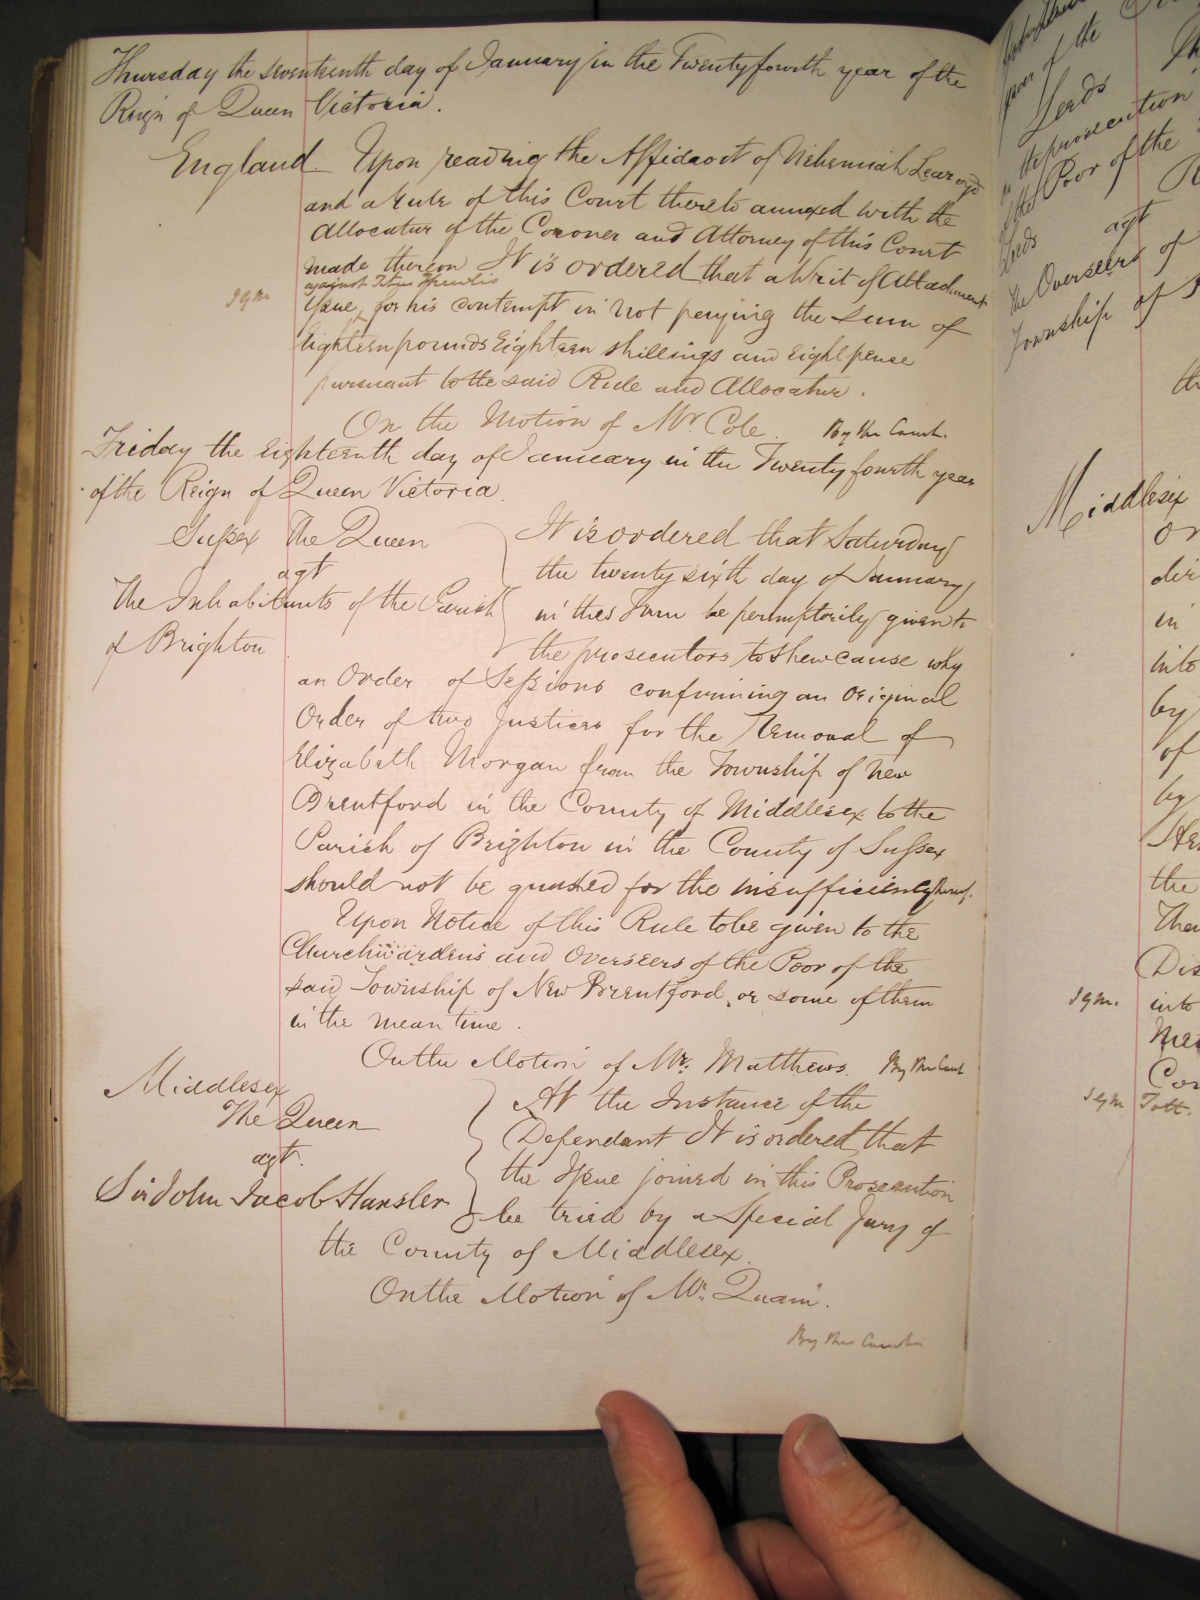 Thursday the seventeenth day of January in the Twentyfourth year of the
Reign of Queen Victoria.
England Upon reading the Affidavit of Nehemiah Learoyd
and a Rule of this Court thereto annexed with the
Allocatur of the Coroner and Attorney of this Court
made thereon It is ordered that a Writ of Attachment
against Titus
Issue, for his contempt in not paying the sum of
Eighteen pounds Eighteen shillings and Eight pence
pursuant to the said Rule and Allocatur.
On the Motion of Mr Cole. By the Court.
Friday the Eighteenth day of January in the Twenty fourth year
of the Reign of Queen Victoria.
Sussex The Queen
agt
The Inhabitants of the Parish
of Brighton
It is ordered that Saturday
the twenty sixth day of January
in this Term be peremptorily given to
the prosecutors to shew cause why
an Order of Sessions confirming an Original
Order of two Justices for the Removal of
Elizabeth Morgan from the Township of New
Brentford in the County of Middlesex to the
Parish of Brighton in the County of Sussex
should not be quashed for the insufficiency thereof.
Upon Notice of this Rule to be given to the
Churchwardens and Overseers of the Poor of the
said Township of New Brentford, or some of them
in the mean time.
On the Motion of Mr. Matthews. By the Court
Middlesex
The Queen
agt.
Sir John Jacob Hansler
At the Instance of the
Defendant It is ordered that
the Issue joined in this Prosecution
be tried by a Special Jury of
the County of Middlesex.
On the Motion of Mr. Quain.
By the Court
year of the
Leeds
in the prosecution
of the Poor of the
Leeds agt
The Overseers of
Township of
Middlesex
in
into
by
of
by
the
into